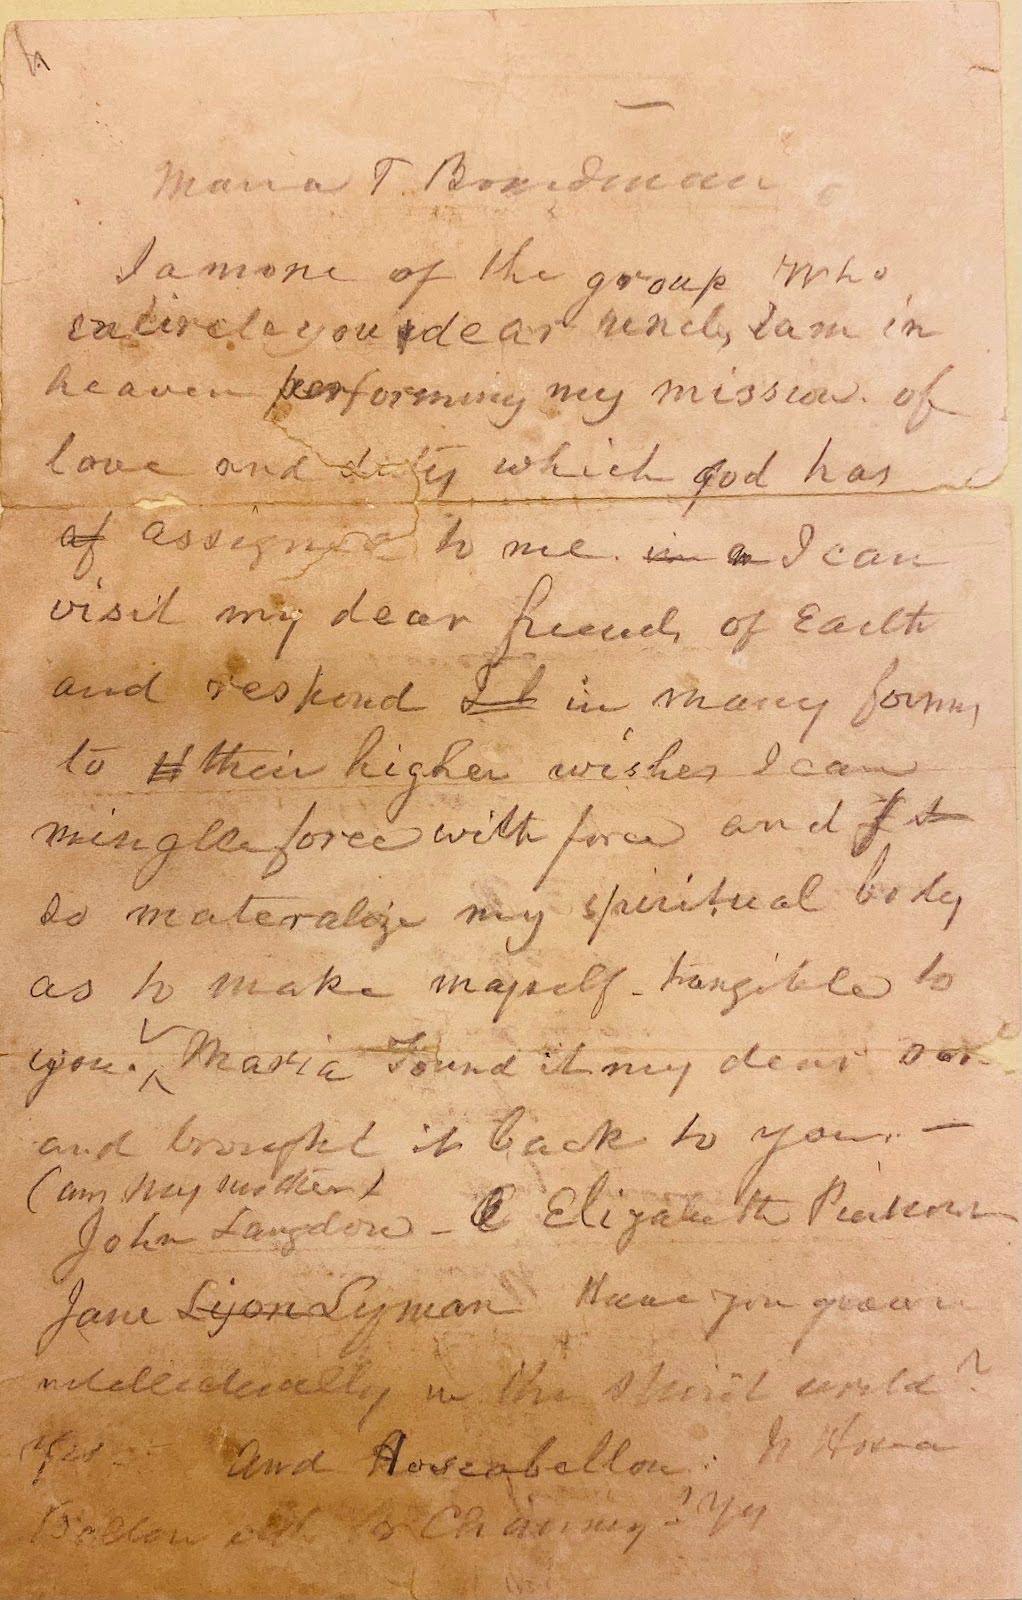 Maria T. Boardman
I am one of the group Who
encircle you dear uncle, I am in
heaven performing my mission of
love and duty which god has
of assigned to me in I can
visit my dear friends of Earth
and respond in many forms
to their higher wishes I can
mingle force with force and
so materalize my spiritual body
as to make mayself tangible to
you. Maria Found it my dear
and brought it back to you. —
(am my mother)
John Langdon - Elizabeth
Jane Lyon Lyman Have you grown
intellectually in the spirit world?
Yes - and Hoseabellou. Is Hosea
Ballou
? Yes